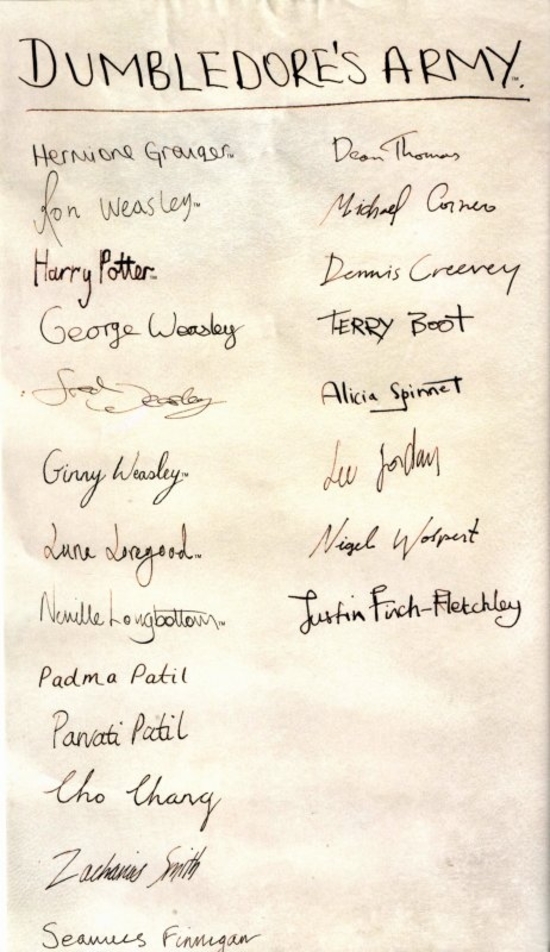 DUMBLEDORE'S ARMY™
Hermione Granger™
Ron Weasley™
Harry Potter™
George Weasley
Fred Weasley
Ginny Weasley™
Luna Lovegood™
Neville Longbottom™
Padma Patil
Parvati Patil
Cho Chang
Zacharias Smith
Seamus Finnigan
Dean Thomas
Michael Corner
Dennis Creevey
TERRY BOOT
Alicia Spinnet
Lee Jordan
Nigel Wolpert
Justin Finch-Fletchley